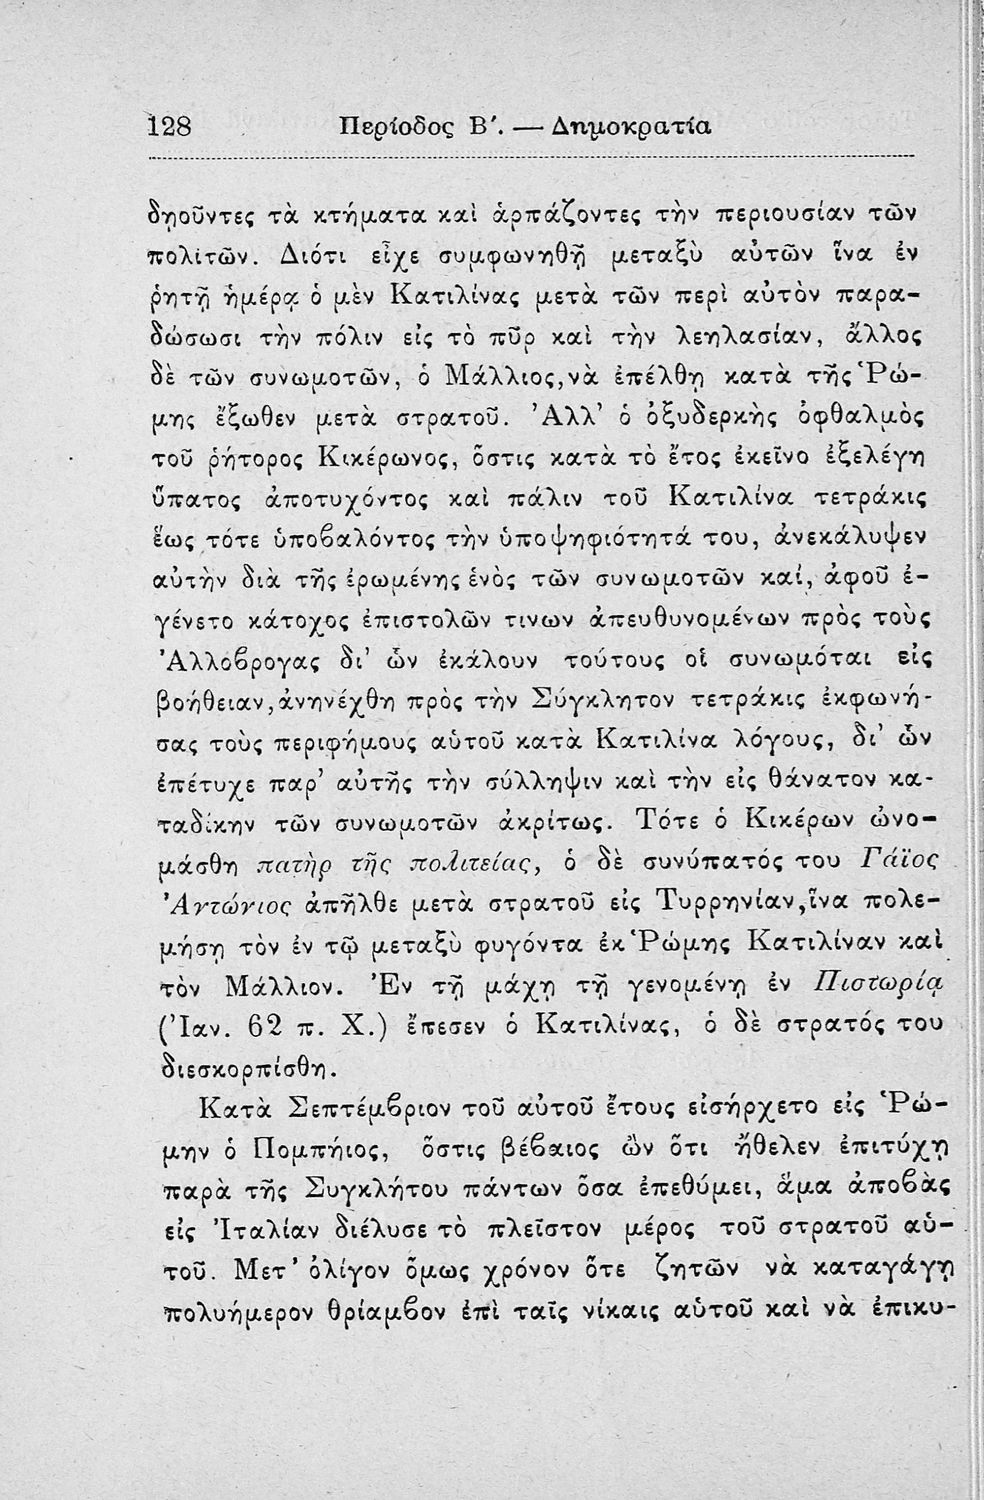 128 Περίοδος Β΄. — Δημοκρατία
δηοῦντες τὰ κτήματα καὶ ἁρπάζοντες τὴν περιουσίαν τῶν
πολιτῶν. Διότι εἶχε συμφωνηθῆ μεταξὺ αὐτῶν ἵνα ἐν
ῥητῇ ἡμέρᾳ ὁ μὲν Κατιλίνας μετὰ τῶν περὶ αὐτὸν παρα-
δώσωσι τὴν πόλιν εἰς τὸ πῦρ καὶ τὴν λεηλασίαν, ἄλλος
δὲ τῶν συνωμοτῶν, ὁ Μάλλιος, νὰ ἐπέλθῃ κατὰ τῆς Ῥώ-
μης ἔξωθεν μετὰ στρατοῦ. Ἀλλ' ὁ ὀξυδερκὴς ὀφθαλμὸς
τοῦ ῥήτορος Κικέρωνος, ὅστις κατὰ τὸ ἔτος ἐκεῖνο ἐξελέγη
ὕπατος ἀποτυχόντος καὶ πάλιν τοῦ Κατιλίνα τετράκις
ἕως τότε ὑποϐαλόντος τὴν ὑποψηφιότητά του, ἀνεκάλυψεν
αὐτὴν διὰ τῆς ἐρωμένης ἑνὸς τῶν συνωμοτῶν καί, ἀφοῦ ἐ-
γένετο κάτοχος ἐπιστολῶν τινων ἀπευθυνομένων πρὸς τοὺς
Ἀλλόϐρογας δι' ὧν ἐκάλουν τούτους οἱ συνωμόται εἰς
βοήθειαν, ἀνηνέχθη πρὸς τὴν Σύγκλητον τετράκις ἐκφωνή-
σας τοὺς περιφήμους αὑτοῦ κατὰ Κατιλίνα λόγους, δι' ὧν
ἐπέτυχε παρ' αὐτῆς τὴν σύλληψιν καὶ τὴν εἰς θάνατον κα-
ταδίκην τῶν συνωμοτῶν ἀκρίτως. Τότε ὁ Κικέρων ὠνο-
μάσθη πατὴρ τῆς πολιτείας, ὁ δὲ συνύπατός του Γάϊος
Ἀντώνιος ἀπῆλθε μετὰ στρατοῦ εἰς Τυρρηνίαν, ἵνα πολε-
μήσῃ τὸν ἐν τῷ μεταξὺ φυγόντα ἐκ Ῥώμης Κατιλίναν καὶ
τὸν Μάλλιον. Ἐν τῇ μάχῃ τῇ γενομένῃ ἐν Πιστωρίᾳ
(Ἰαν. 62 π. Χ.) ἔπεσεν ὁ Κατιλίνας, ὁ δὲ στρατός του
διεσκορπίσθη.
Κατὰ Σεπτέμϐριον τοῦ αὐτοῦ ἔτους εἰσήρχετο εἰς Ῥώ-
μην ὁ Πομπήιος, ὅστις βέϐαιος ὢν ὅτι ἤθελεν ἐπιτύχῃ
παρὰ τῆς Συγκλήτου πάντων ὅσα ἐπεθύμει, ἅμα ἀποϐὰς
εἰς Ἰταλίαν διέλυσε τὸ πλεῖστον μέρος τοῦ στρατοῦ αὑ-
τοῦ. Μετ' ὀλίγον ὅμως χρόνον ὅτε ζητῶν νὰ καταγάγῃ
πολυήμερον θρίαμϐον ἐπὶ ταῖς νίκαις αὑτοῦ καὶ νὰ ἐπικυ-